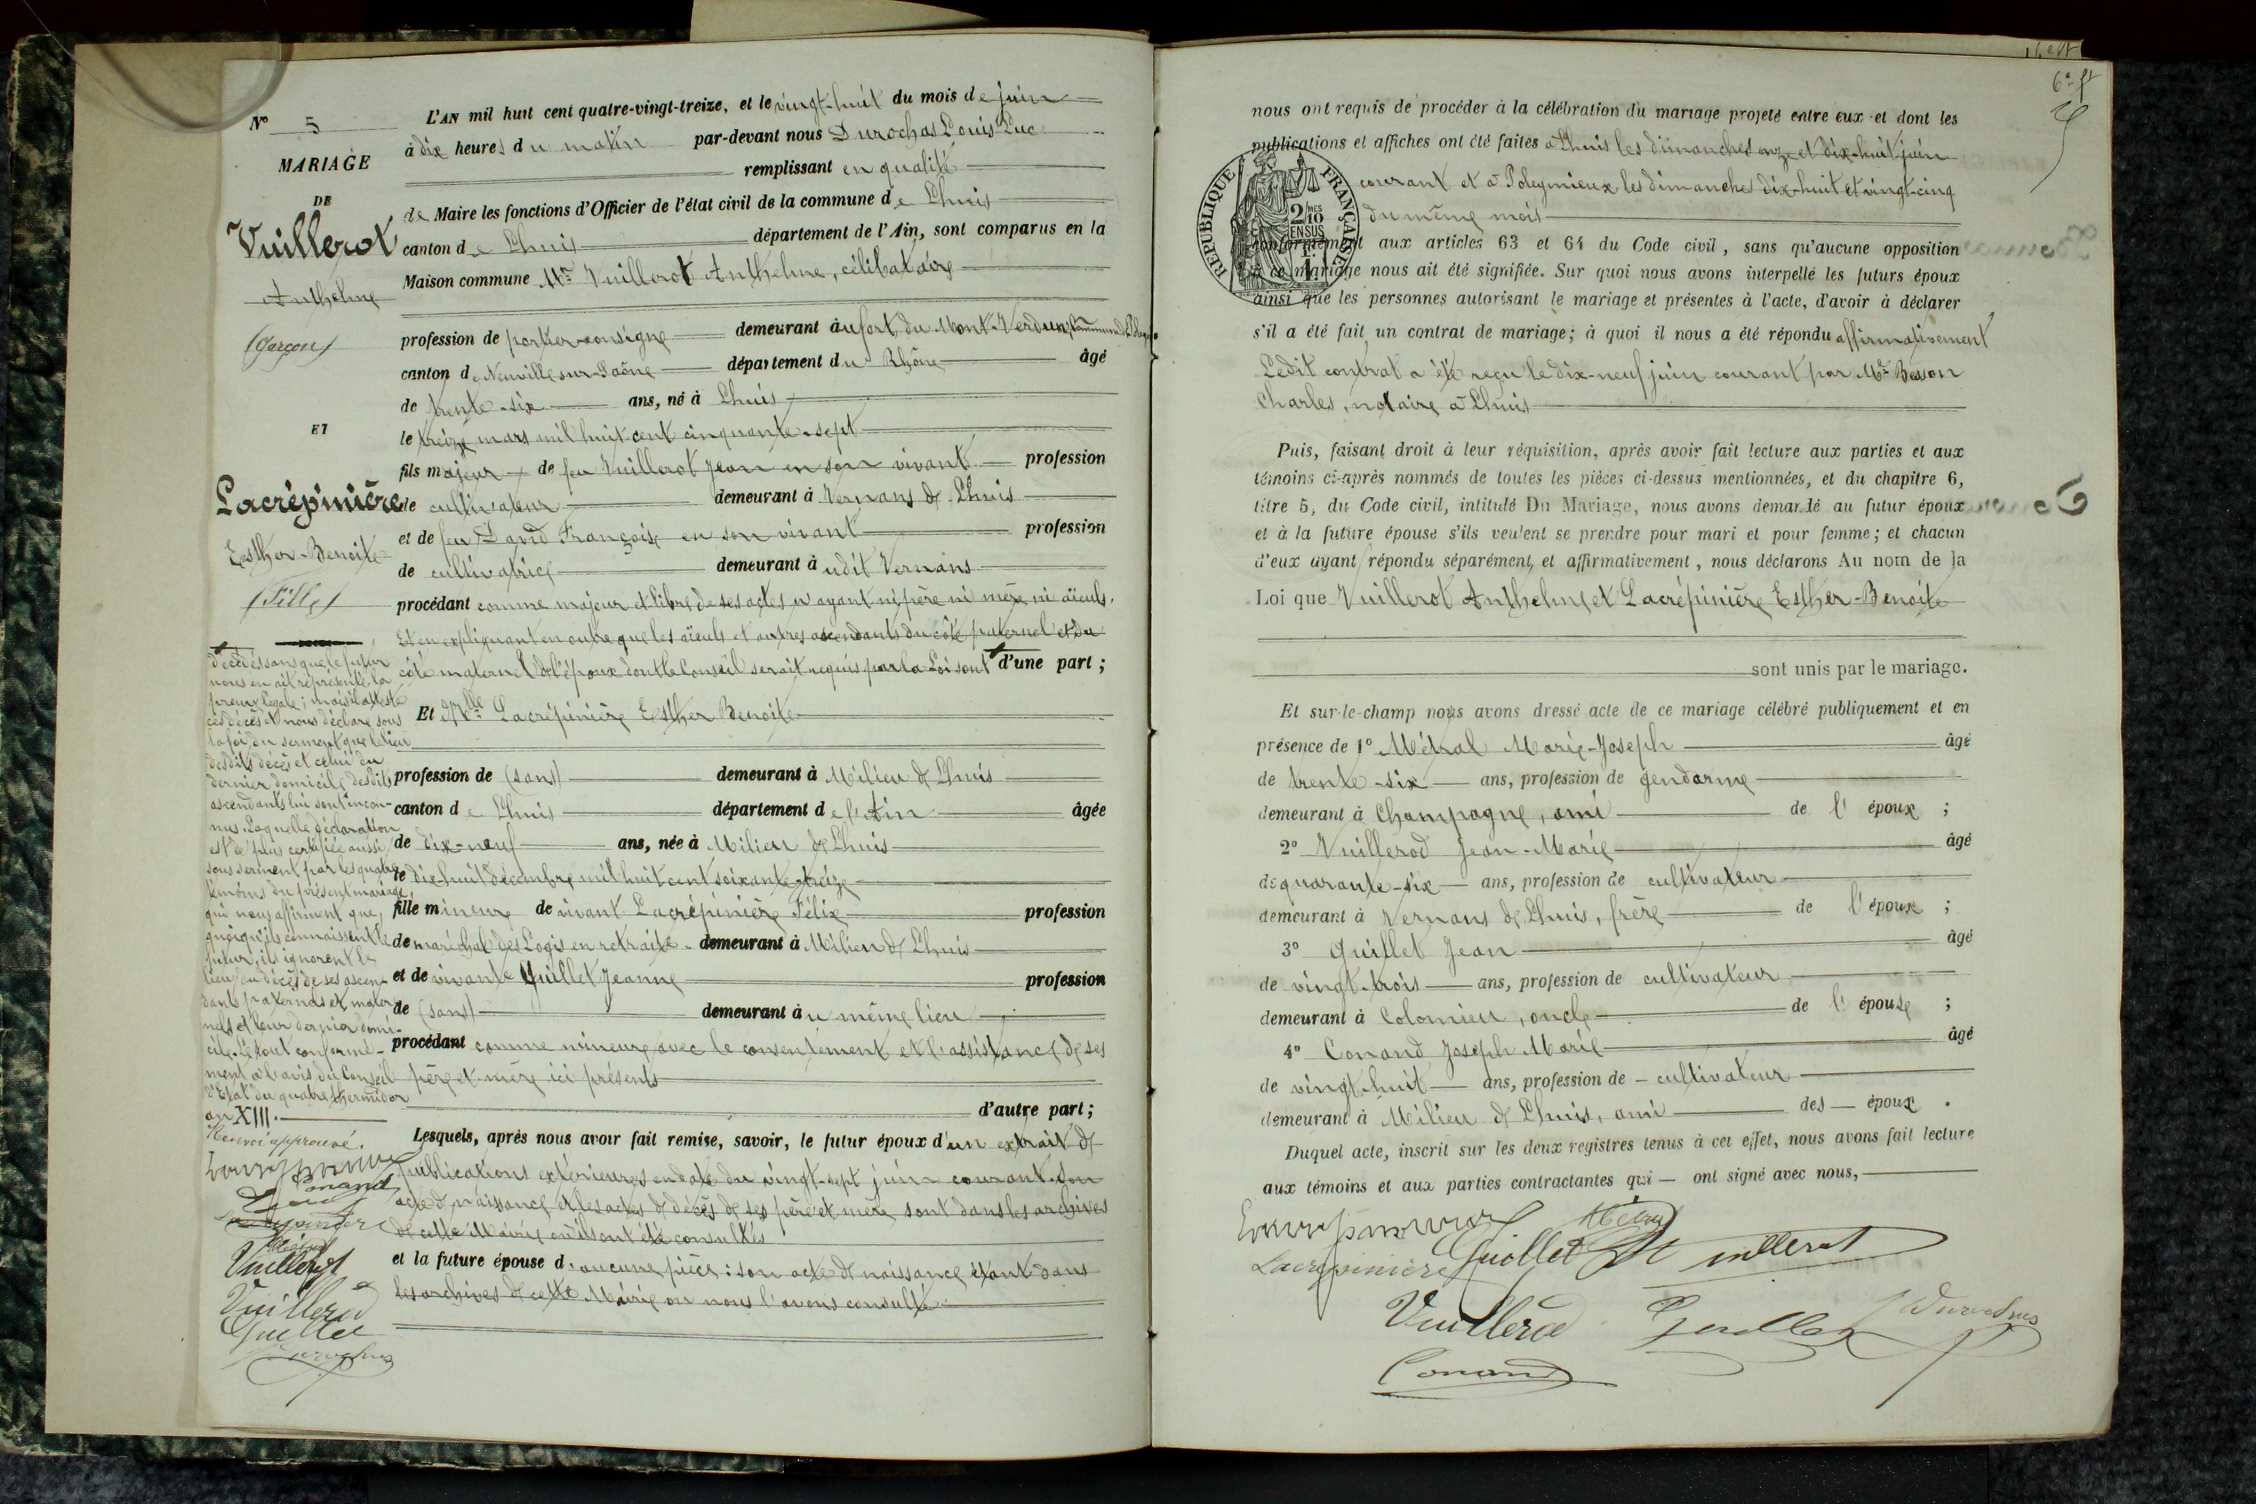 N° 5
MARIAGE
DE
Vuillerot
Anthelme
(garçon)
ET
Lacrépinière
Esther-Benoite
(Fille)
décédés sans que le futur
nous en ait représenté la
preuve légale; mais il atteste
ces décès et nous déclare sous
la foi du serment que le lieu
desdits décès et celui du
dernier domicile desdits
ascendants lui sont incon-
nus. Laquelle déclaration
est de plus certifiée aussi
sous serment par les quatre
témoins du présent mariage,
qui nous affirment que,
quoiqu'ils connaissent le
futur, ils ignorent le
lieu du décès de ses ascen-
dants paternels et mater-
nels et leur dernier domi-
cile. Le tout conformé-
ment à l'avis du Conseil
d'Etat du quatre thermidor
an XIII.
Renvoi approuvé.
Conand
Lacrépinière
Vuillerot
Vuillerod
Guillet
Durochas
L'AN mil huit cent quatre-vingt-treize, et le vingt-huit du mois de juin
à dix heures du matin par-devant nous Durochas Louis Luc
remplissant en qualité
de Maire les fonctions d'Officier de l'état civil de la commune de Lhuis
canton de Lhuis département de l'Ain, sont comparus en la
Maison commune Mr Vuillerot Anthelme, célibataire
profession de portier-consigne demeurant au fort du Mont-Verdun, Commune de
canton de Neuville-sur-Saône département du Rhône âgé
de trente-six ans, né à Lhuis
le treize mars mil huit cent cinquante-sept
fils majeur de feu Vuillerot Jean en son vivant profession
de cultivateur demeurant à Vernans de Lhuis
et de feu David Françoise en son vivant profession
de cultivatrice demeurant à udit Vernans
procédant comme majeur et libre de ses actes n'ayant ni père ni mère ni aïeuls.
Et en expliquant en outre que les aïeuls et autres ascendants du côté paternel et du
côté maternel de l'époux dont le Conseil serait requis par la Loi sont d'une part;
Et Mlle Lacrépinière Esther Benoite
profession de (sans) demeurant à Milieu de Lhuis
canton de Lhuis département de l'Ain âgée
de dix-neuf ans, née à Milieu de Lhuis
le dix-huit décembre mil huit cent soixante-treize
fille mineure de vivant Lacrépinière Félix profession
de maréchal des Logis en retraite demeurant à Milieu de Lhuis
et de vivante Guillet Jeanne profession
de (sans) demeurant au même lieu
procédant comme mineure avec le consentement et l'assistance de ses
père et mère ici présents
d'autre part;
Lesquels, après nous avoir fait remise, savoir, le futur époux d'un extrait de
publications extérieures en date du vingt-sept juin courant. Son
acte de naissance et les actes de décès de ses père et mère sont dans les archives
de cette Mairie où ils ont été consultés
et la future épouse d'aucune pièce: son acte de naissance étant dans
les archives de cette Mairie où nous l'avons consulté
6e ft
nous ont requis de procéder à la célébration du mariage projeté entre eux et dont les
publications et affiches ont été faites à Lhuis les dimanches onze et dix-huit juin
courant et à Poleymieux les dimanches dix-huit et vingt-cinq
du même mois
conformément aux articles 63 et 64 du Code civil, sans qu'aucune opposition
à ce mariage nous ait été signifiée. Sur quoi nous avons interpellé les futurs époux
ainsi que les personnes autorisant le mariage et présentes à l'acte, d'avoir à déclarer
s'il a été fait un contrat de mariage; à quoi il nous a été répondu affirmativement
Ledit contrat a été reçu le dix-neuf juin courant par Me Besson
Charles, notaire à Lhuis
RÉPUBLIQUE FRANÇAISE
2/10
EN SUS
Puis, faisant droit à leur réquisition, après avoir fait lecture aux parties et aux
témoins ci-après nommés de toutes les pièces ci-dessus mentionnées, et du chapitre 6,
titre 5, du Code civil, intitulé Du Mariage, nous avons demandé au futur époux
et à la future épouse s'ils veulent se prendre pour mari et pour femme; et chacun
d'eux ayant répondu séparément et affirmativement, nous déclarons Au nom de la
Loi que Vuillerot Anthelme et Lacrépinière Esther-Benoite
sont unis par le mariage.
Et sur-le-champ nous avons dressé acte de ce mariage célébré publiquement et en
présence de 1° Métral Marie-Joseph âgé
de trente-six ans, profession de gendarme
demeurant à Champagne, ami de l'époux;
2° Vuillerod Jean-Marie âgé
de quarante-six ans, profession de cultivateur
demeurant à Vernans de Lhuis, frère de l'époux;
3° Guillet Jean âgé
de vingt-trois ans, profession de cultivateur
demeurant à Colomieu, oncle de l'épouse;
4° Conand Joseph Marie âgé
de vingt-huit ans, profession de cultivateur
demeurant à Milieu de Lhuis, ami des époux.
Duquel acte, inscrit sur les deux registres tenus à cet effet, nous avons fait lecture
aux témoins et aux parties contractantes qui ont signé avec nous,
Métral
Lacrépinière Guillet Vuillerot
Vuillerod Guillet Durochas
Conand